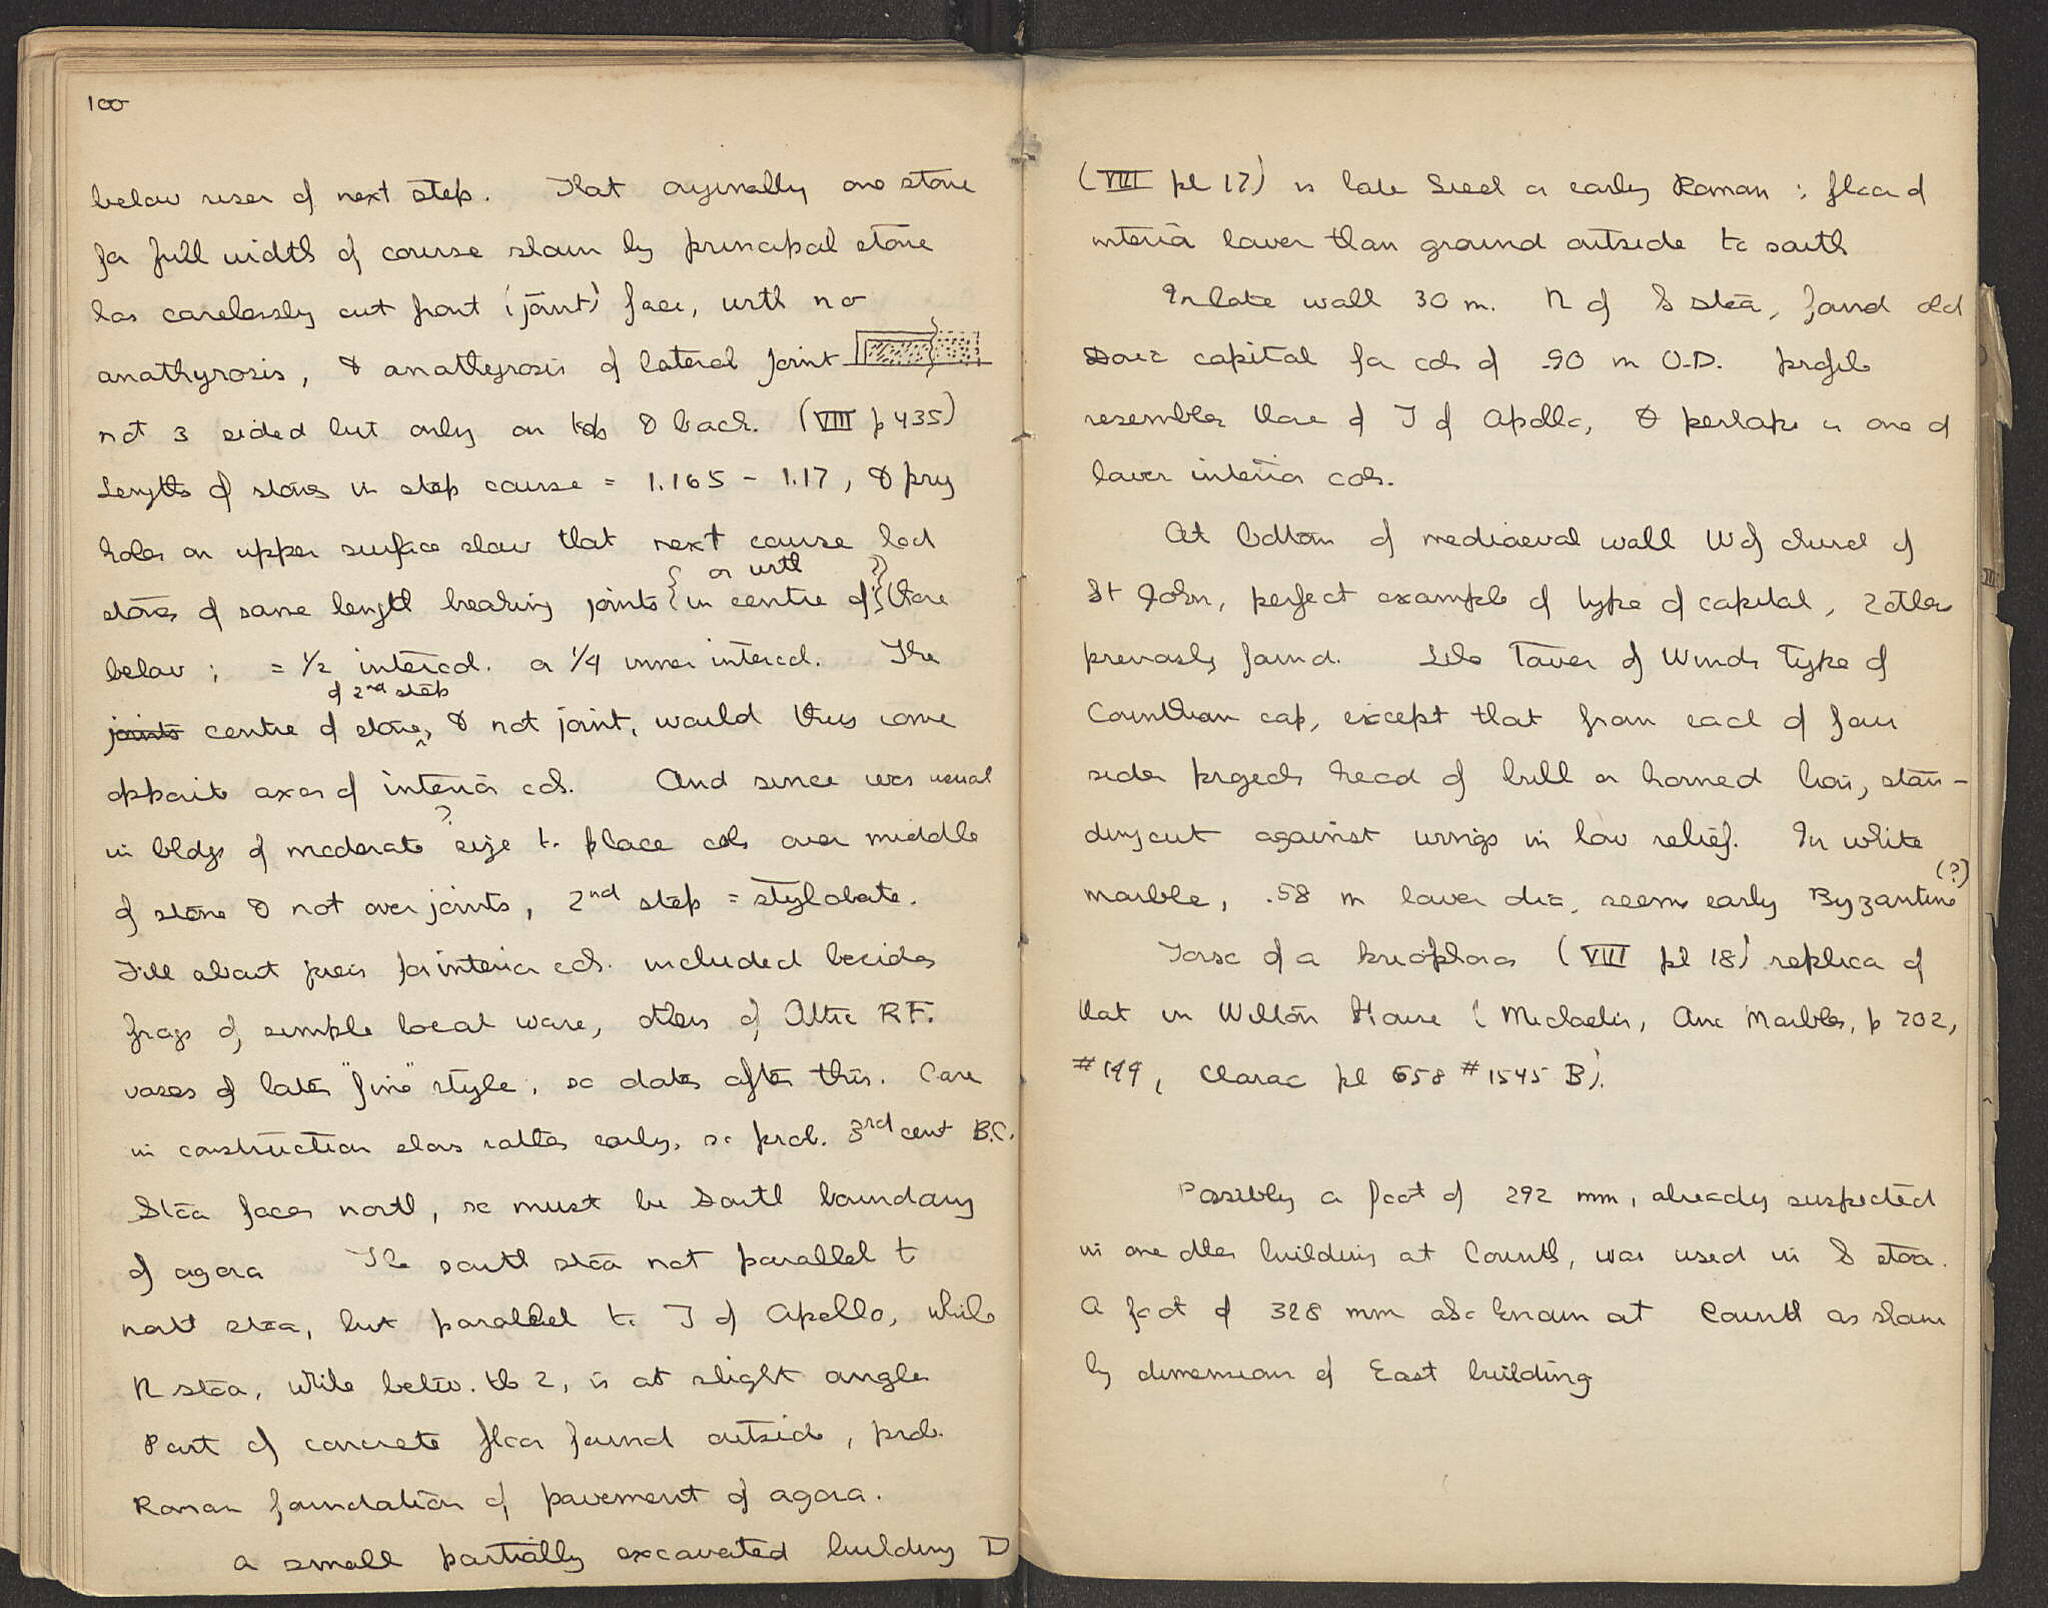 100
below riser of next step. That originally one stone
for full width of course shown by principal stone
has carelessly cut front (joint) face, with no
anathyrosis, & anathyrosis of lateral joint
not 3 sided but only on top & back. (VIII p 435)
Lengths of stones in step course = 1.165 - 1.17, & pry
holes on upper surface show that next course had
or with ?
stones of same length breaking joints {in centre of} those
below ; = 1/2 intercol. or 1/4 inner intercol. The
of 2nd step
joints centre of stone, & not joint, would thus come
opposite axes of interior cols. And since was usual
?
in bldgs of moderate size to place cols over middle
of stone & not over joints, 2nd step = stylobate.
Fill about piers for interior cols. included besides
frags of simple local ware, others of Attic R.F.
vases of later "fine" style, so dates after this. Care
in construction shows rather early, so prob. 3rd cent B.C.
Stoa faces north, so must be South boundary
of agora The south stoa not parallel to
north stoa, but parallel to T of Apollo, while
N stoa, while betw. the 2, is at slight angle
Part of concrete floor found outside, prob.
Roman foundation of pavement of agora.
A small partially excavated building D
(VIII pl 17) is late Greek or early Roman ; floor of
interior lower than ground outside to south
In late wall 30 m. N of S stoa, found old
Doric capital for cols of .90 m O.D. profile
resembles those of T of Apollo, & perhaps is one of
lower interior cols.
At bottom of mediaeval wall W of church of
St John, perfect example of type of capital, 2 others
previously found. Like Tower of Winds type of
Corinthian cap, except that from each of four
sides projects head of bull or horned lion, stan-
ding out against wings in low relief. In white
(?)
marble, .58 m lower dia, seems early Byzantine
Torso of a kriophoros (VIII pl 18) replica of
that in Wilton House (Michaelis, Anc Marbles, p 702,
#144, Clarac pl 658 #1545 B).
Possibly a foot of 292 mm, already suspected
in one other building at Corinth, was used in S stoa.
A foot of 328 mm also known at Corinth as shown
by dimensions of East building